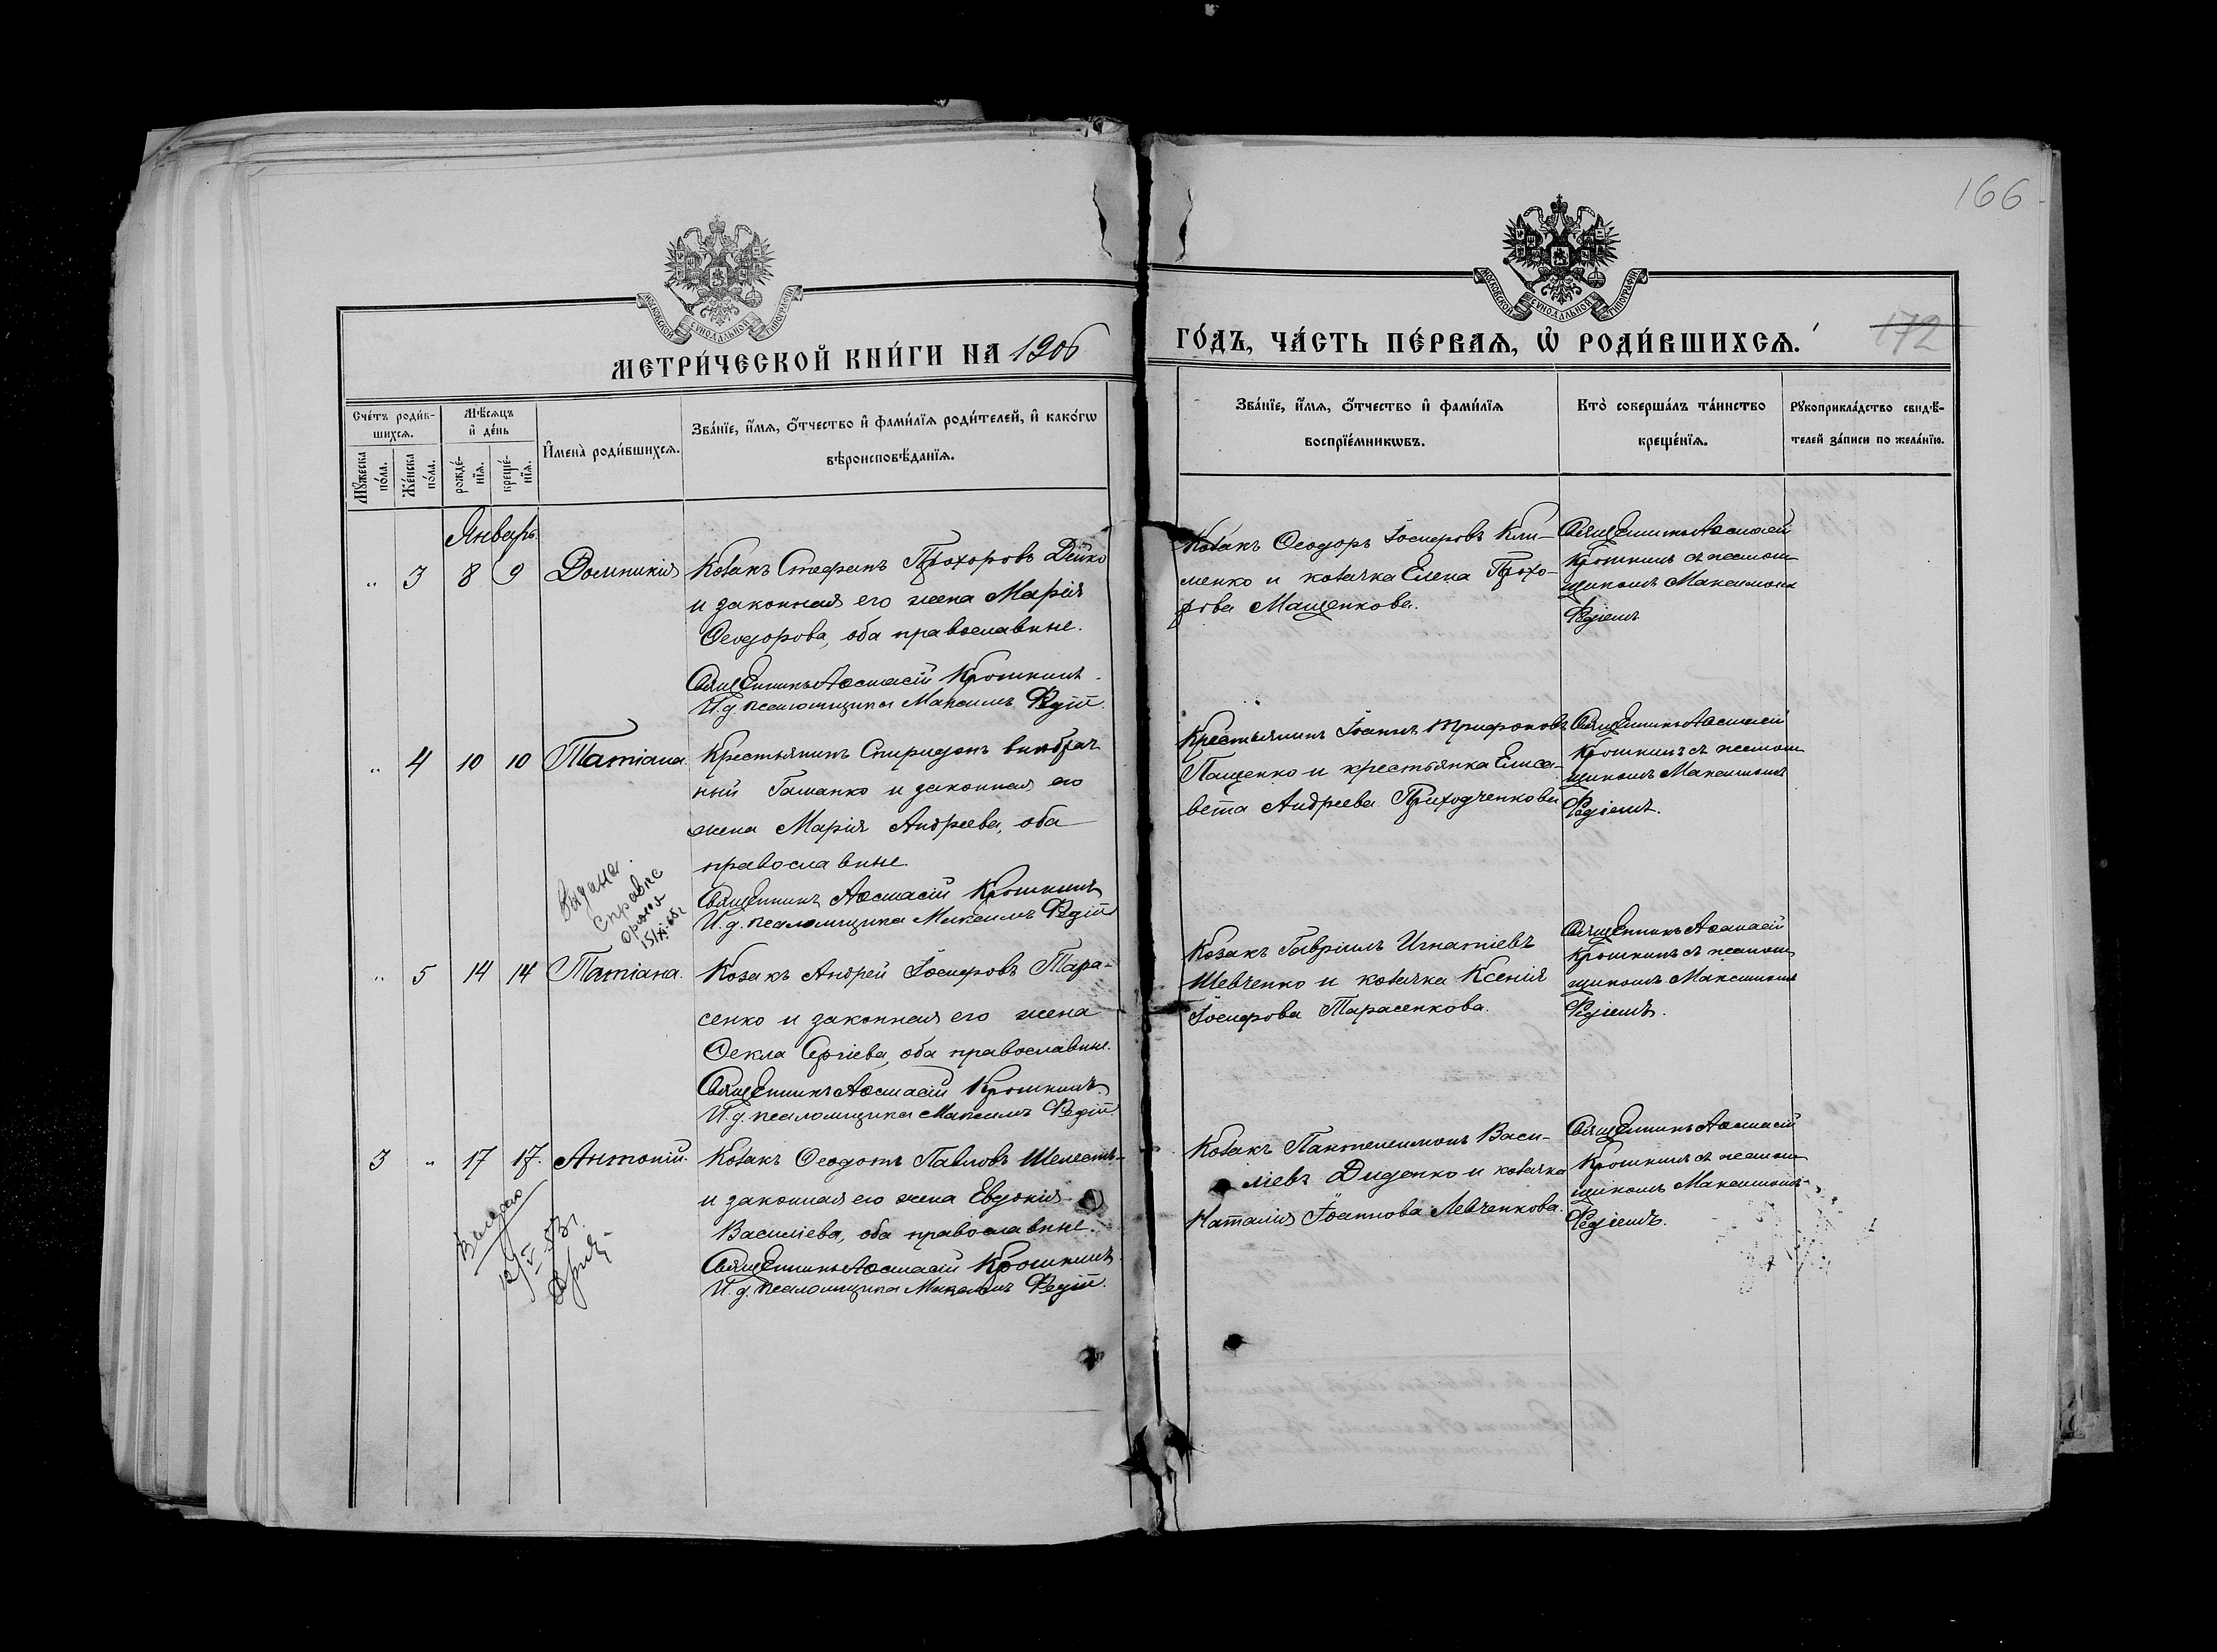 166
МОСКОВСКОЙ СѴНОДАЛЬНОЙ ТИПОГРАФІИ
МОСКОВСКОЙ СѴНОДАЛЬНОЙ ТИПОГРАФІИ
МЕТРИ́ЧЕСКОЙ КНИ́ГИ НА 1906
ГО́ДЪ, ЧА́СТЬ ПЕ́РВАѦ, Ѡ҆ РОДИ́ВШИХСѦ.
172
Сче́тъ роди́в-
шихсѧ.
Мѣ́сѧцъ
и҆ де́нь
Мꙋ́жеска
по́ла.
Же́нска
по́ла.
рожде́-
нїѧ.
креще́-
нїѧ.
И҆мена̀ роди́вшихсѧ.
Зва́нїе, и҆́мѧ, ѻ҆́тчество и҆ фами́лїѧ роди́телей, и҆ како́гѡ
вѣроисповѣ́данїѧ.
Зва́нїе, и҆́мѧ, ѻ҆́тчество и҆ фами́лїѧ
воспрїе́мникѡвъ.
Кто̀ соверша́лъ та́инство
креще́нїѧ.
Рꙋкоприкла́дство свидѣ́-
телей за́писи по жела́нїю.
Январь.
" 3 8 9 Домникія
Козакъ Стефанъ Прохоровъ Дейко
и законная его жена Марія
Ѳеодорова, оба православные.
Священникъ Аѳанасій Крошкинъ.
И. д. псаломщика Максимъ Редій.
Козакъ Ѳеодоръ Іосифовъ Кли-
менко и козачка Елена Прохо-
рова Мащенкова.
Священникъ Аѳанасій
Крошкинъ съ псалом-
щикомъ Максимомъ
Редіемъ
" 4 10 10 Татіана
Крестьянинъ Спиридонъ внѣбрач-
ный Гаманко и законная его
жена Марія Андреева, оба
православные.
Священникъ Аѳанасій Крошкинъ
И. д. псаломщика Максимъ Редій
Крестьянинъ Іоаннъ Трифоновъ
Пащенко и крестьянка Елиса-
вета Андреева Приходченкова
Священникъ Аѳанасій
Крошкинъ съ псалом-
щикомъ Максимомъ
Редіемъ.
Видана
" 5 14 14 Татіана.
Козакъ Андрей Іосифовъ Тара-
сенко и законная его жена
Ѳекла Сергіева, оба православные.
Священникъ Аѳанасій Крошкинъ
И. д. псаломщика Максимъ Редій
Козакъ Гавріилъ Игнатіевъ
Шевченко и козачка Ксенія
Іосифова Тарасенкова.
Священникъ Аѳанасій
Крошкинъ съ псалом-
щикомъ Максимомъ
Редіемъ.
3 " 17 17. Антоній.
Козакъ Ѳеодотъ Павловъ Шелестъ
и законная его жена Евдокія
Василіева, оба православные.
Священникъ Аѳанасій Крошкинъ.
И. д. псаломщика Максимъ Редій.
Козакъ Пантелеимонъ Васи-
ліевъ Диденко и козачка
Наталія Іоаннова Левченкова.
Священникъ Аѳанасій
Крошкинъ съ псалом-
щикомъ Максимомъ
Редіемъ.